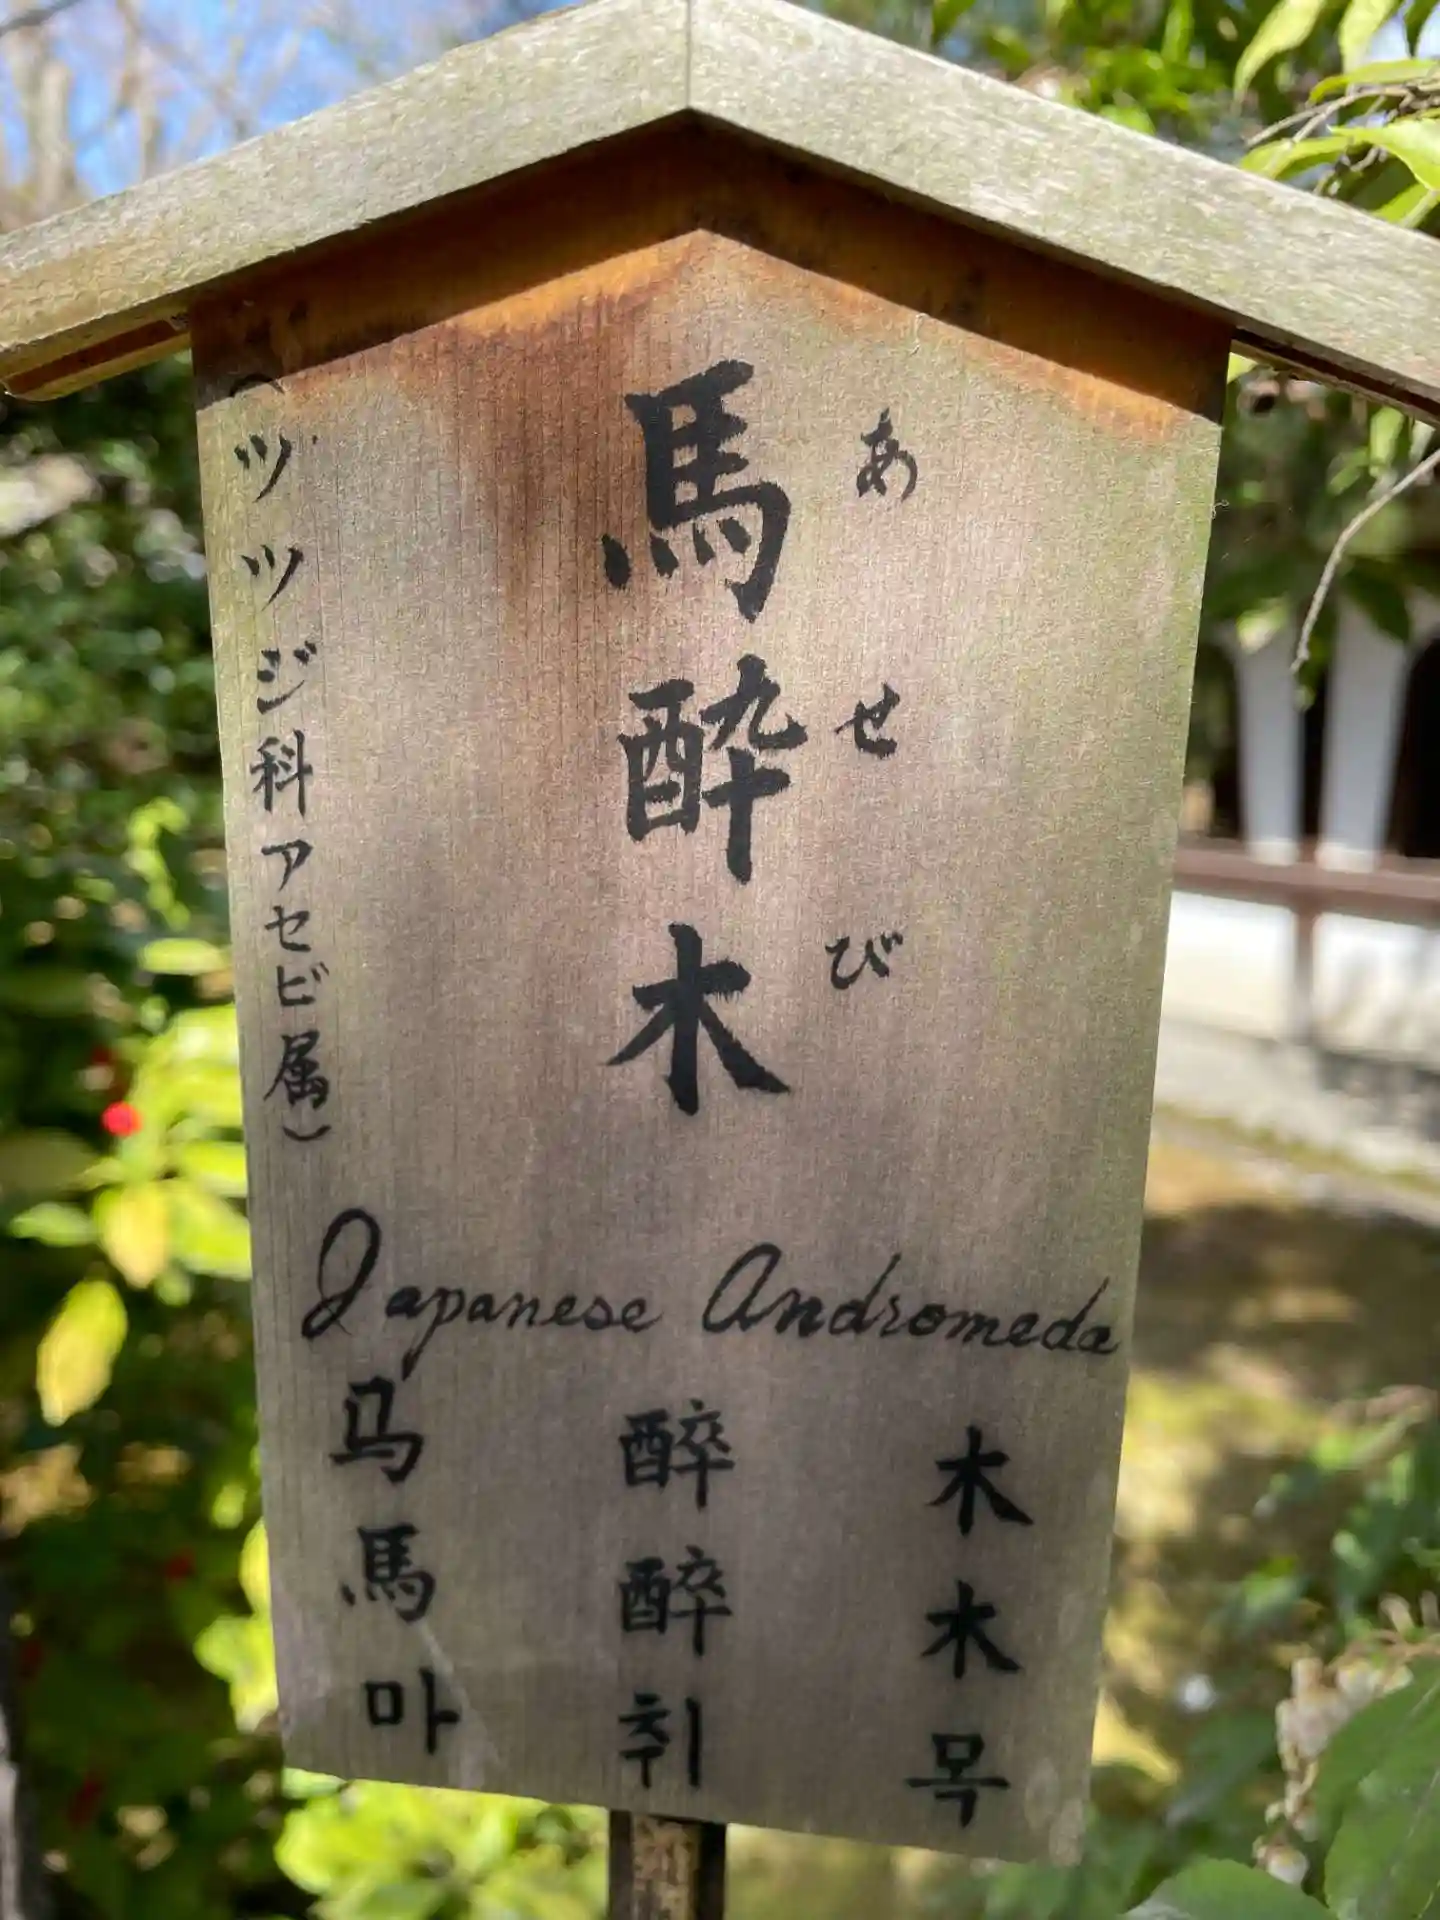 あせび
馬酔木
(ツツジ科アセビ属)
Japanese Andromeda
马 醉 木
馬 醉 木
마 취 목